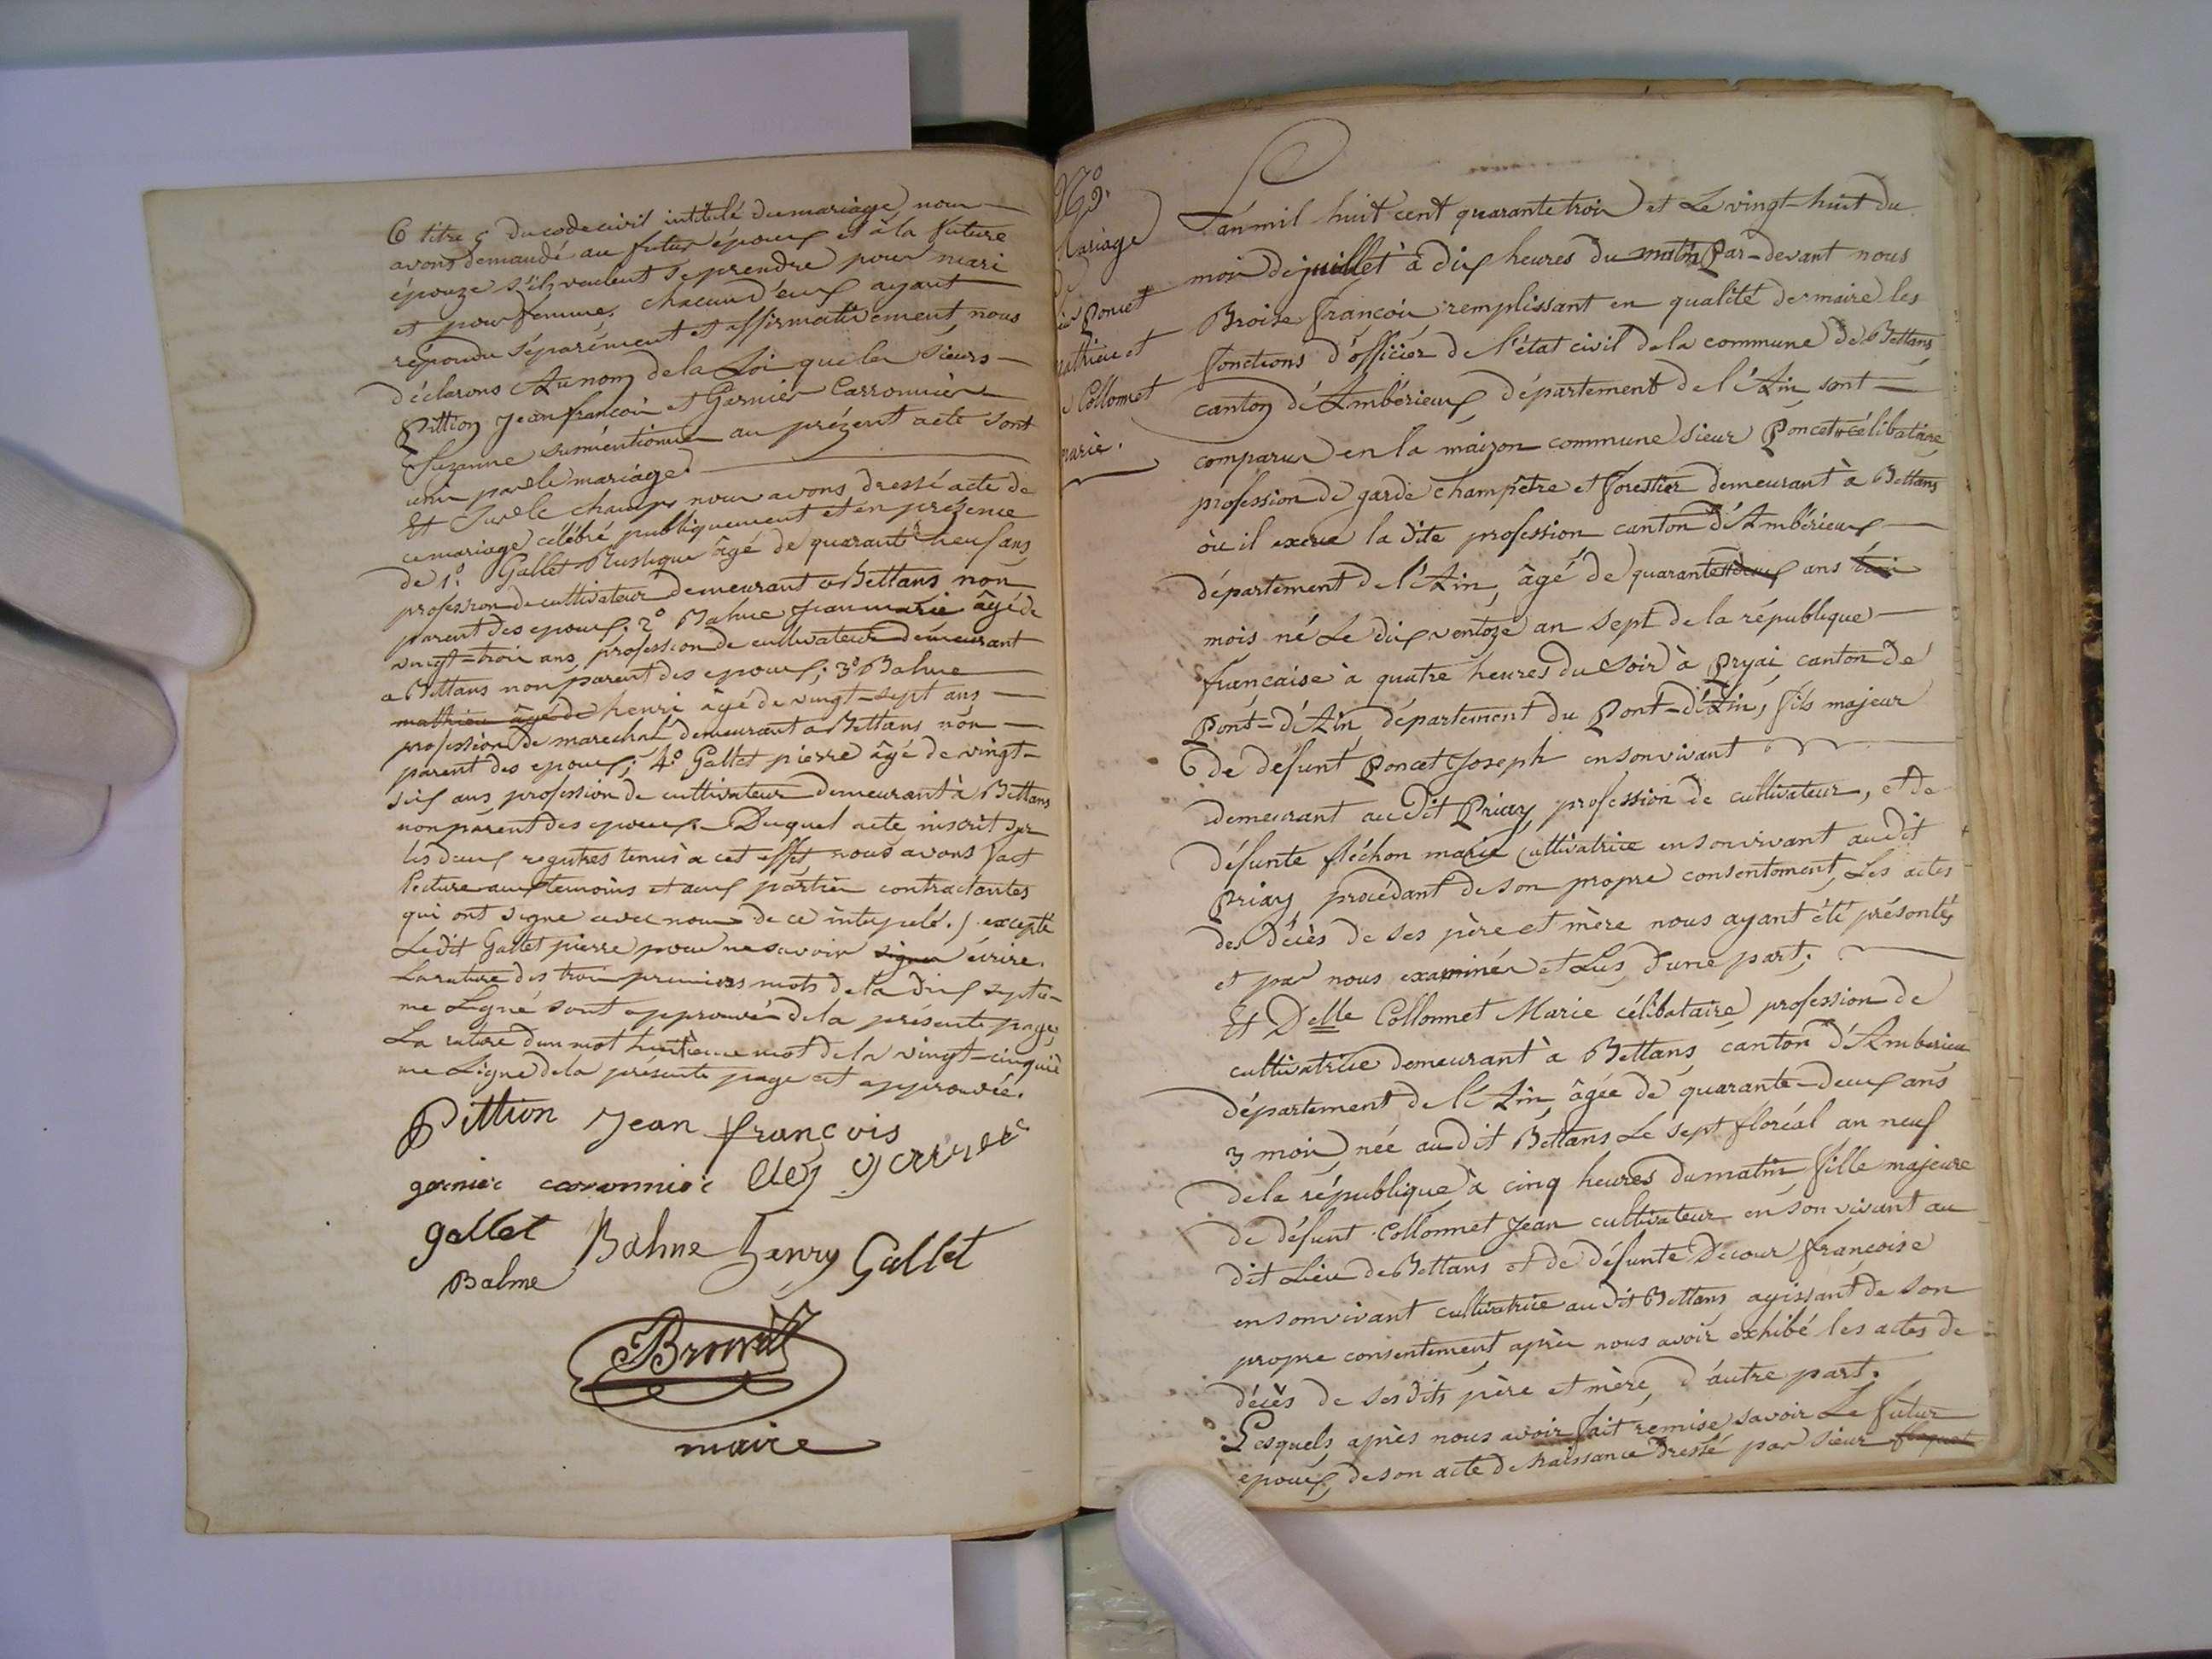 6 titre 5 du code civil intitulé du mariage, nous
avons demandé au futur époux et à la future
épouze s'ils veulent se prendre pour mari
et pour femme, chacun d'eux ayant
répondu séparément et affirmativement, nous
déclarons Au nom de la Loi que les sieurs
Pittion Jean françois et Garnier Carronnier
Suzanne susmentionnés au prézent acte sont
unis par le mariage.
Et Sur le champ nous avons dressé acte de
ce mariage célébré publiquement et en présence
de 1.° Gallet Rustique âgé de quarante neuf ans
profession de cultivateur demeurant a Bettans non
parent des epoux; 2° Bahne Jean marie âgé de
vingt-trois ans, profession de cultivateur demeurant
a Bettans non parent des epoux; 3° Bahne
mathieu âgé de henri âgé de vingt-sept ans
profession de marechal demeurant a Bettans non
parent des epoux; 4° Gallet pierre âgé de vingt-
six ans profession de cultivateur demeurant à Bettans
non parent des epoux. Duquel acte, inscrit sur
les deux registres tenus à cet effet nous avons fait
lecture aux temoins et aux parties contractantes
qui ont signe avec nous de ce interpelé. / excepté
Ledit Gallet pierre pour ne savoir signer écrire.
La rature des trois premiers mots de la dix septiè-
me Ligne sont approuvés de la présente page,
La rature d'un mot huitieme mot de la vingt-cinquiè
me Ligne de la présente page est approuvée.
Pittion Jean françois
garnier caronnier
gallet Bahne henry Gallet
Balme
maire
N° 2.
Mariage
de
Poncet
mathieu et
Collomet
marie.
L'an mil huit cent quarante trois et Le vingt-huit du
mois de juillet à dix heures du matin Par-devant nous
Broise françois remplissant en qualité de maire les
fonctions d'officier de l'état civil de la commune de Bettans
canton d'Ambérieux, département de l'Ain sont
comparus en la maizon commune sieur Poncet célibataire
profession de garde champêtre et forestier demeurant à Bettans
où il exerce la dite profession canton d'Ambérieux
département de l'Ain, âgé de quarante deux ans trois
mois né Le dix ventoze an sept de la république
française à quatre heures du soir à Pryai canton de
Pont-d'Ain, département du Pont-d'Ain, fils majeur
de défunt Poncet Joseph en son vivant
demeurant audit Priay profession de cultivateur, et de
défunte fléchon marie cultivatrice en son vivant audit
Priay procédant de son propre consentement, Les actes
des décès de ses père et mère nous ayant été présentés
et par nous examinés et Lus, d'une part;
Et Delle Collomet Marie célibataire profession de
cultivatrice demeurant à Bettans, canton d'Amberieu
département de l'Ain, âgée de quarante-deux ans
3 mois, née audit Bettans Le sept floréal an neuf
de la république à cinq heures du matin, fille majeure
de défunt Collomet Jean cultivateur en son vivant au
dit Lieu de Bettans et de défunte Decour françoise
en son vivant cultivatrice audit Bettans agissant de son
propre consentement après nous avoir exhibé les actes de
décès de sesdits père et mère, d'autre part.
Lesquels après nous avoir fait remise savoir Le futur
epoux, de son acte de Naissance dressé par sieur